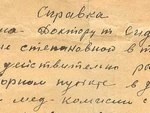 Справка
на Доктору т. Сид
не степановной в т
действительно ра
орном пункте в д
мед. комисси с